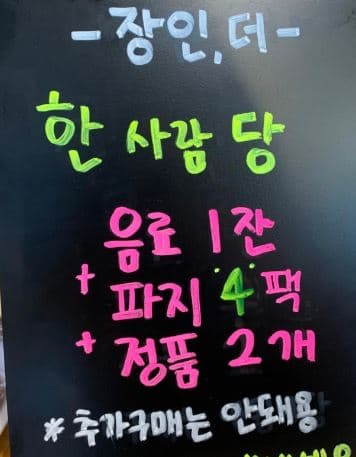 -장인,더-
한 사람 당
음료 1잔
+ 파지 4팩
+ 정품 2개
* 추가구매는 안돼용